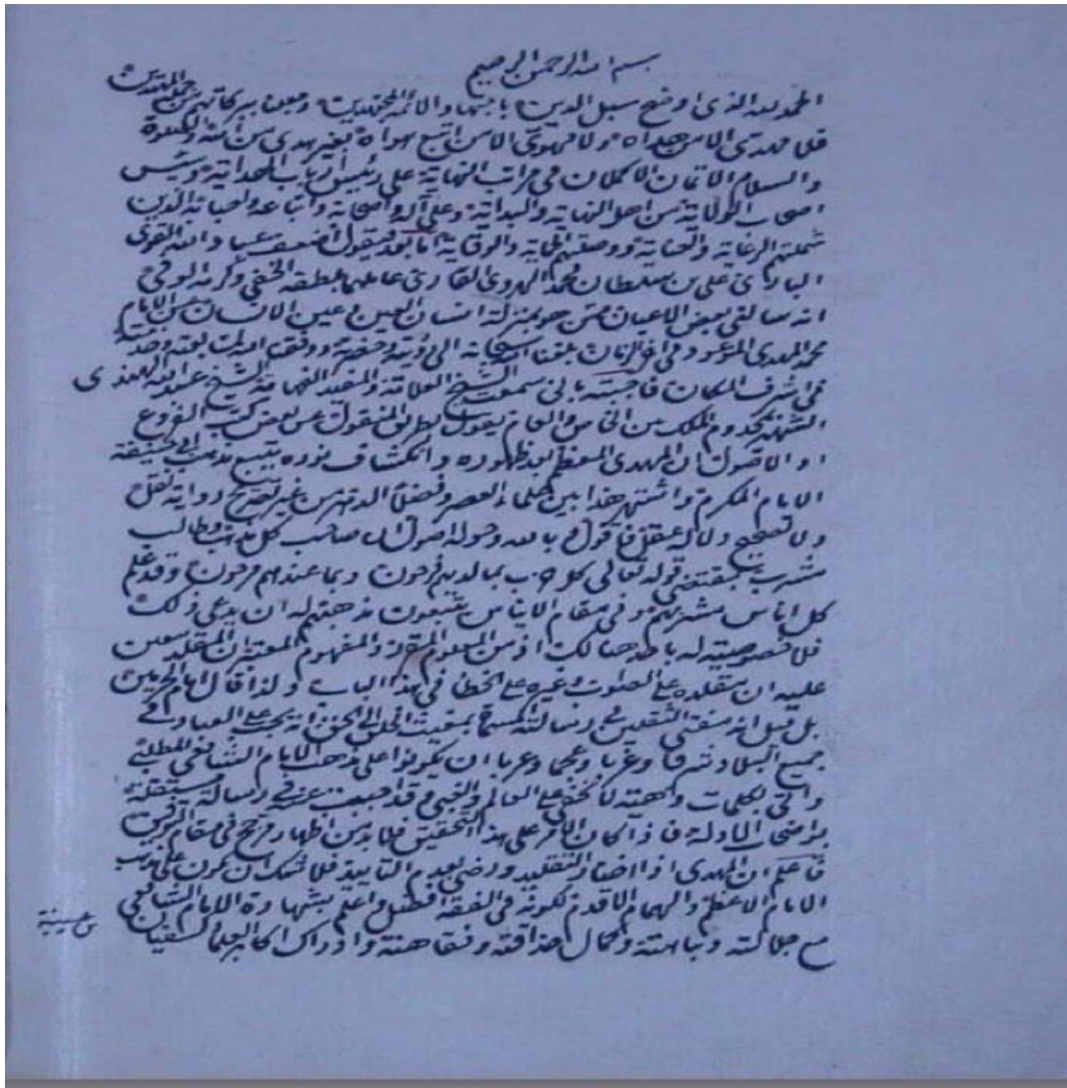 بسم الله الرحمن الرحيم
الحمد لله الذى اوضح سبل الدين باجتهاد الائمة المجتهدين وبين ببركاتهم
فلا مهتدى الا من هداه ولا مهوى الا من اتبع هواه بغير هدى من الله والصلوة
والسلام الاتمان الاكملان فى مراتب النهاية على رئيس ارباب الهداية ورئيس
اصحاب الولاية من اهل النهاية والبداية وعلى آله واصحابه واتباعه واحبابه الذين
شملتهم الرعاية والعناية ووصفتهم الحماية والوقاية اما بعد فيقول اضعف عباد الله القوى
البارى على بن سلطان محمد الهروى القارى عاملهما بلطفه الخفى وكرمه الوفى
انه سالنى بعض الاعيان ممن هو بمنزلة انسان العين وعين الانسان عن الامام
محمد المهدى الموعود فى اخر الزمان بلغنا الله سبحانه الى رؤيته وحضرته ووفقنا الله لمتابعته وخدمته
فى اشرف المكان فاجبته بانى سمعت الشيخ العلامة والمفيد الفهامة الشيخ عبد الله الهندى
الشهير بمخدوم الملك بين الخاص والعام يقول بطريق المنقول عن بعض كتب الفروع
او الاصول ان المهدى المعظم بعد ظهوره وانكشاف نوره يتبع مذهب ابى حنيفة
الامام المكرم واشتهر هذا بين علماء العصر وفضلاء الدهر من غير تصريح رواية نقل
ولا تصحيح دلالة عقل فاقول وبالله وحوله اصول ان صاحب كل مذهب وطالب
مشرب بمقتضى قوله تعالى كل حزب بما لديهم فرحون وبما عندهم مرحون وقد علم
كل اناس مشربهم وفى مقام الايناس يتبعون مذهبهم له ان يدعى ذلك
فلا خصوصية له باحد هنالك اذ من المعلوم المقرر والمفهوم المعتبر ان المقلد يتعين
عليه ان مقلده على الصواب وغيره على الخطا فى هذا الباب ولذا قال امام الحرمين
بل قيل انه مفتى الثقلين فى رسالته المسماة بمغيث الخلق الى الحق انه يجب على العباد فى
جميع البلاد شرقا وغربا وعجما وعربا ان يكونوا على مذهب الامام الشافعى المطلبى
واتى بكلمات واهية لا تخفى على العالم والغبى وقد اجبت عنه فى رسالة مستقلة
بواضحات الادلة فاذا كان الامر على هذا التحقيق فلا بد من اظهار مرجح فى مقام
فاعلم ان المهدى اذا اختار التقليد ورضى بعدم التاييد فلا شك ان يكون على مذهب
الامام الاعظم والهمام الاقدم لكونه فى الفقه افضل واعلم بشهادة الامام الشافعى
مع جلالته ونباهته وكمال حذاقته وفقاهته وادراك اكابر علماء السفيان
بن عيينة